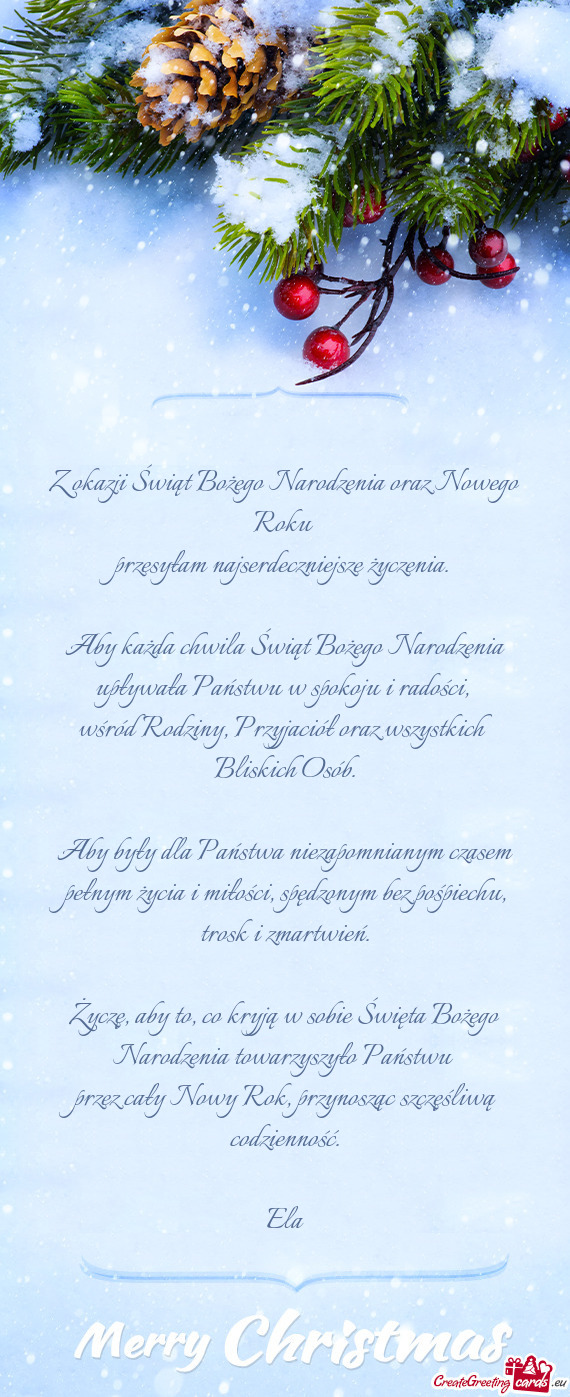 Z okazji Świąt Bożego Narodzenia oraz Nowego
Roku
przesyłam najserdeczniejsze życzenia.
Aby każda chwila Świąt Bożego Narodzenia
upływała Państwu w spokoju i radości,
wśród Rodziny, Przyjaciół oraz wszystkich
Bliskich Osób.
Aby były dla Państwa niezapomnianym czasem
pełnym życia i miłości, spędzonym bez pośpiechu,
trosk i zmartwień.
Życzę, aby to, co kryją w sobie Święta Bożego
Narodzenia towarzyszyło Państwu
przez cały Nowy Rok, przynosząc szczęśliwą
codzienność.
Ela
Merry Christmas
CreateGreetingcards.eu